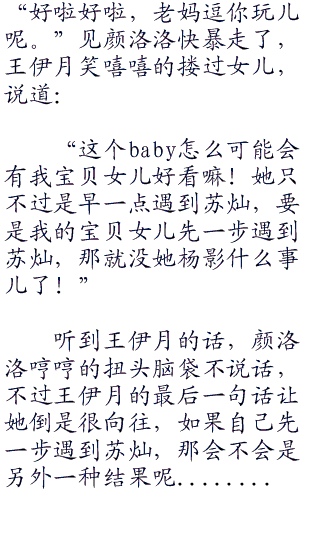 “好啦好啦，老妈逗你玩儿
呢。”见颜洛洛快暴走了，
王伊月笑嘻嘻的搂过女儿，
说道：
“这个baby怎么可能会
有我宝贝女儿好看嘛！她只
不过是早一点遇到苏灿，要
是我的宝贝女儿先一步遇到
苏灿，那就没她杨影什么事
儿了！”
听到王伊月的话，颜洛
洛哼哼的扭头脑袋不说话，
不过王伊月的最后一句话让
她倒是很向往，如果自己先
一步遇到苏灿，那会不会是
另外一种结果呢........